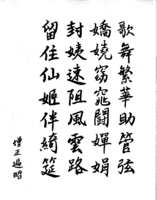 歌舞繁華助管弦
嬌嬈窈窕鬪嬋娟
封姨速阻風雲路
留住仙姬伴綺筵
僧正遍昭